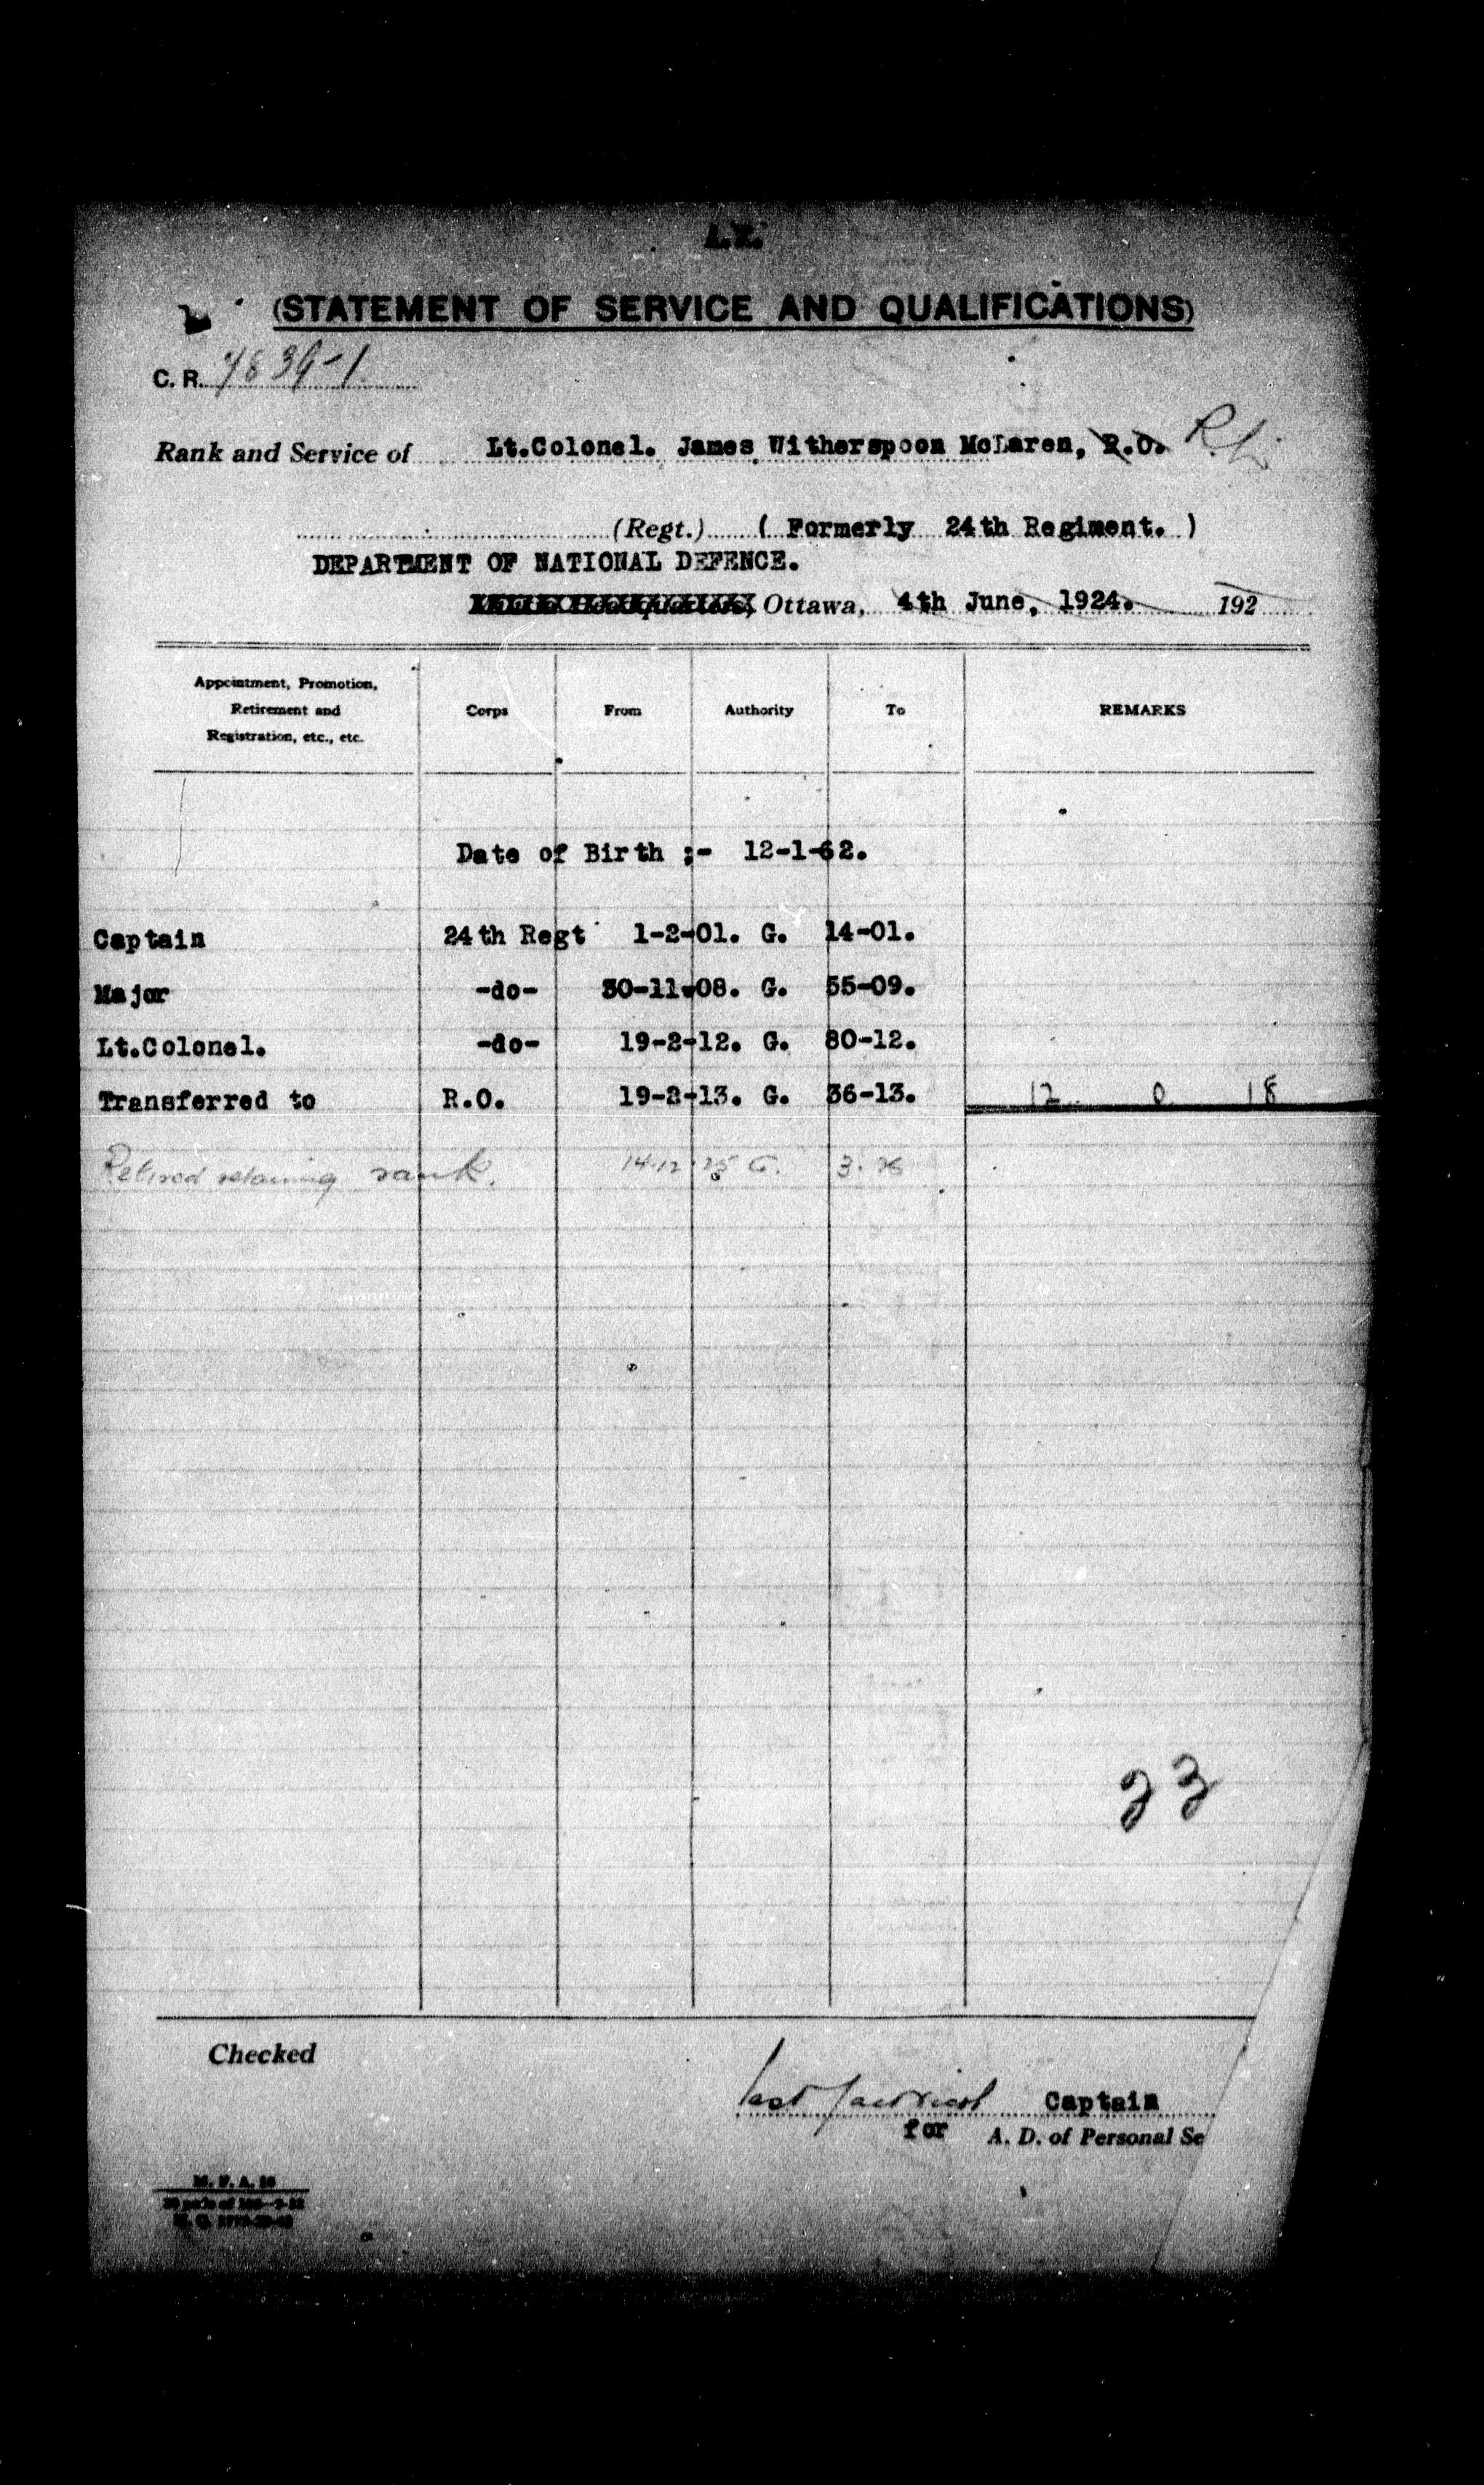 (STATEMENT OF SERVICE AND QUALIFICATIONS)
C. R. 4839-1
Rank and Service of Lt.Colonel. James Witherspoon McLaren, R.O. R.L.
(Regt.) ( Formerly 24th Regiment. )
DEPARTMENT OF NATIONAL DEFENCE.
Ottawa, 4th June, 1924. 192
Appointment, Promotion, Retirement and Registration, etc., etc. Corps From Authority To REMARKS
Date of Birth :- 12-1-62.
Captain 24th Regt 1-2-01. G. 14-01.
Major -do- 30-11-08. G. 55-09.
Lt.Colonel. -do- 19-2-12. G. 80-12.
Transferred to R.O. 19-2-13. G. 36-13. 12 0 18
Retired retaining rank. 14-12-25 G. 3-26
23
Checked
Captain
for A. D. of Personal Se
M. F. A.